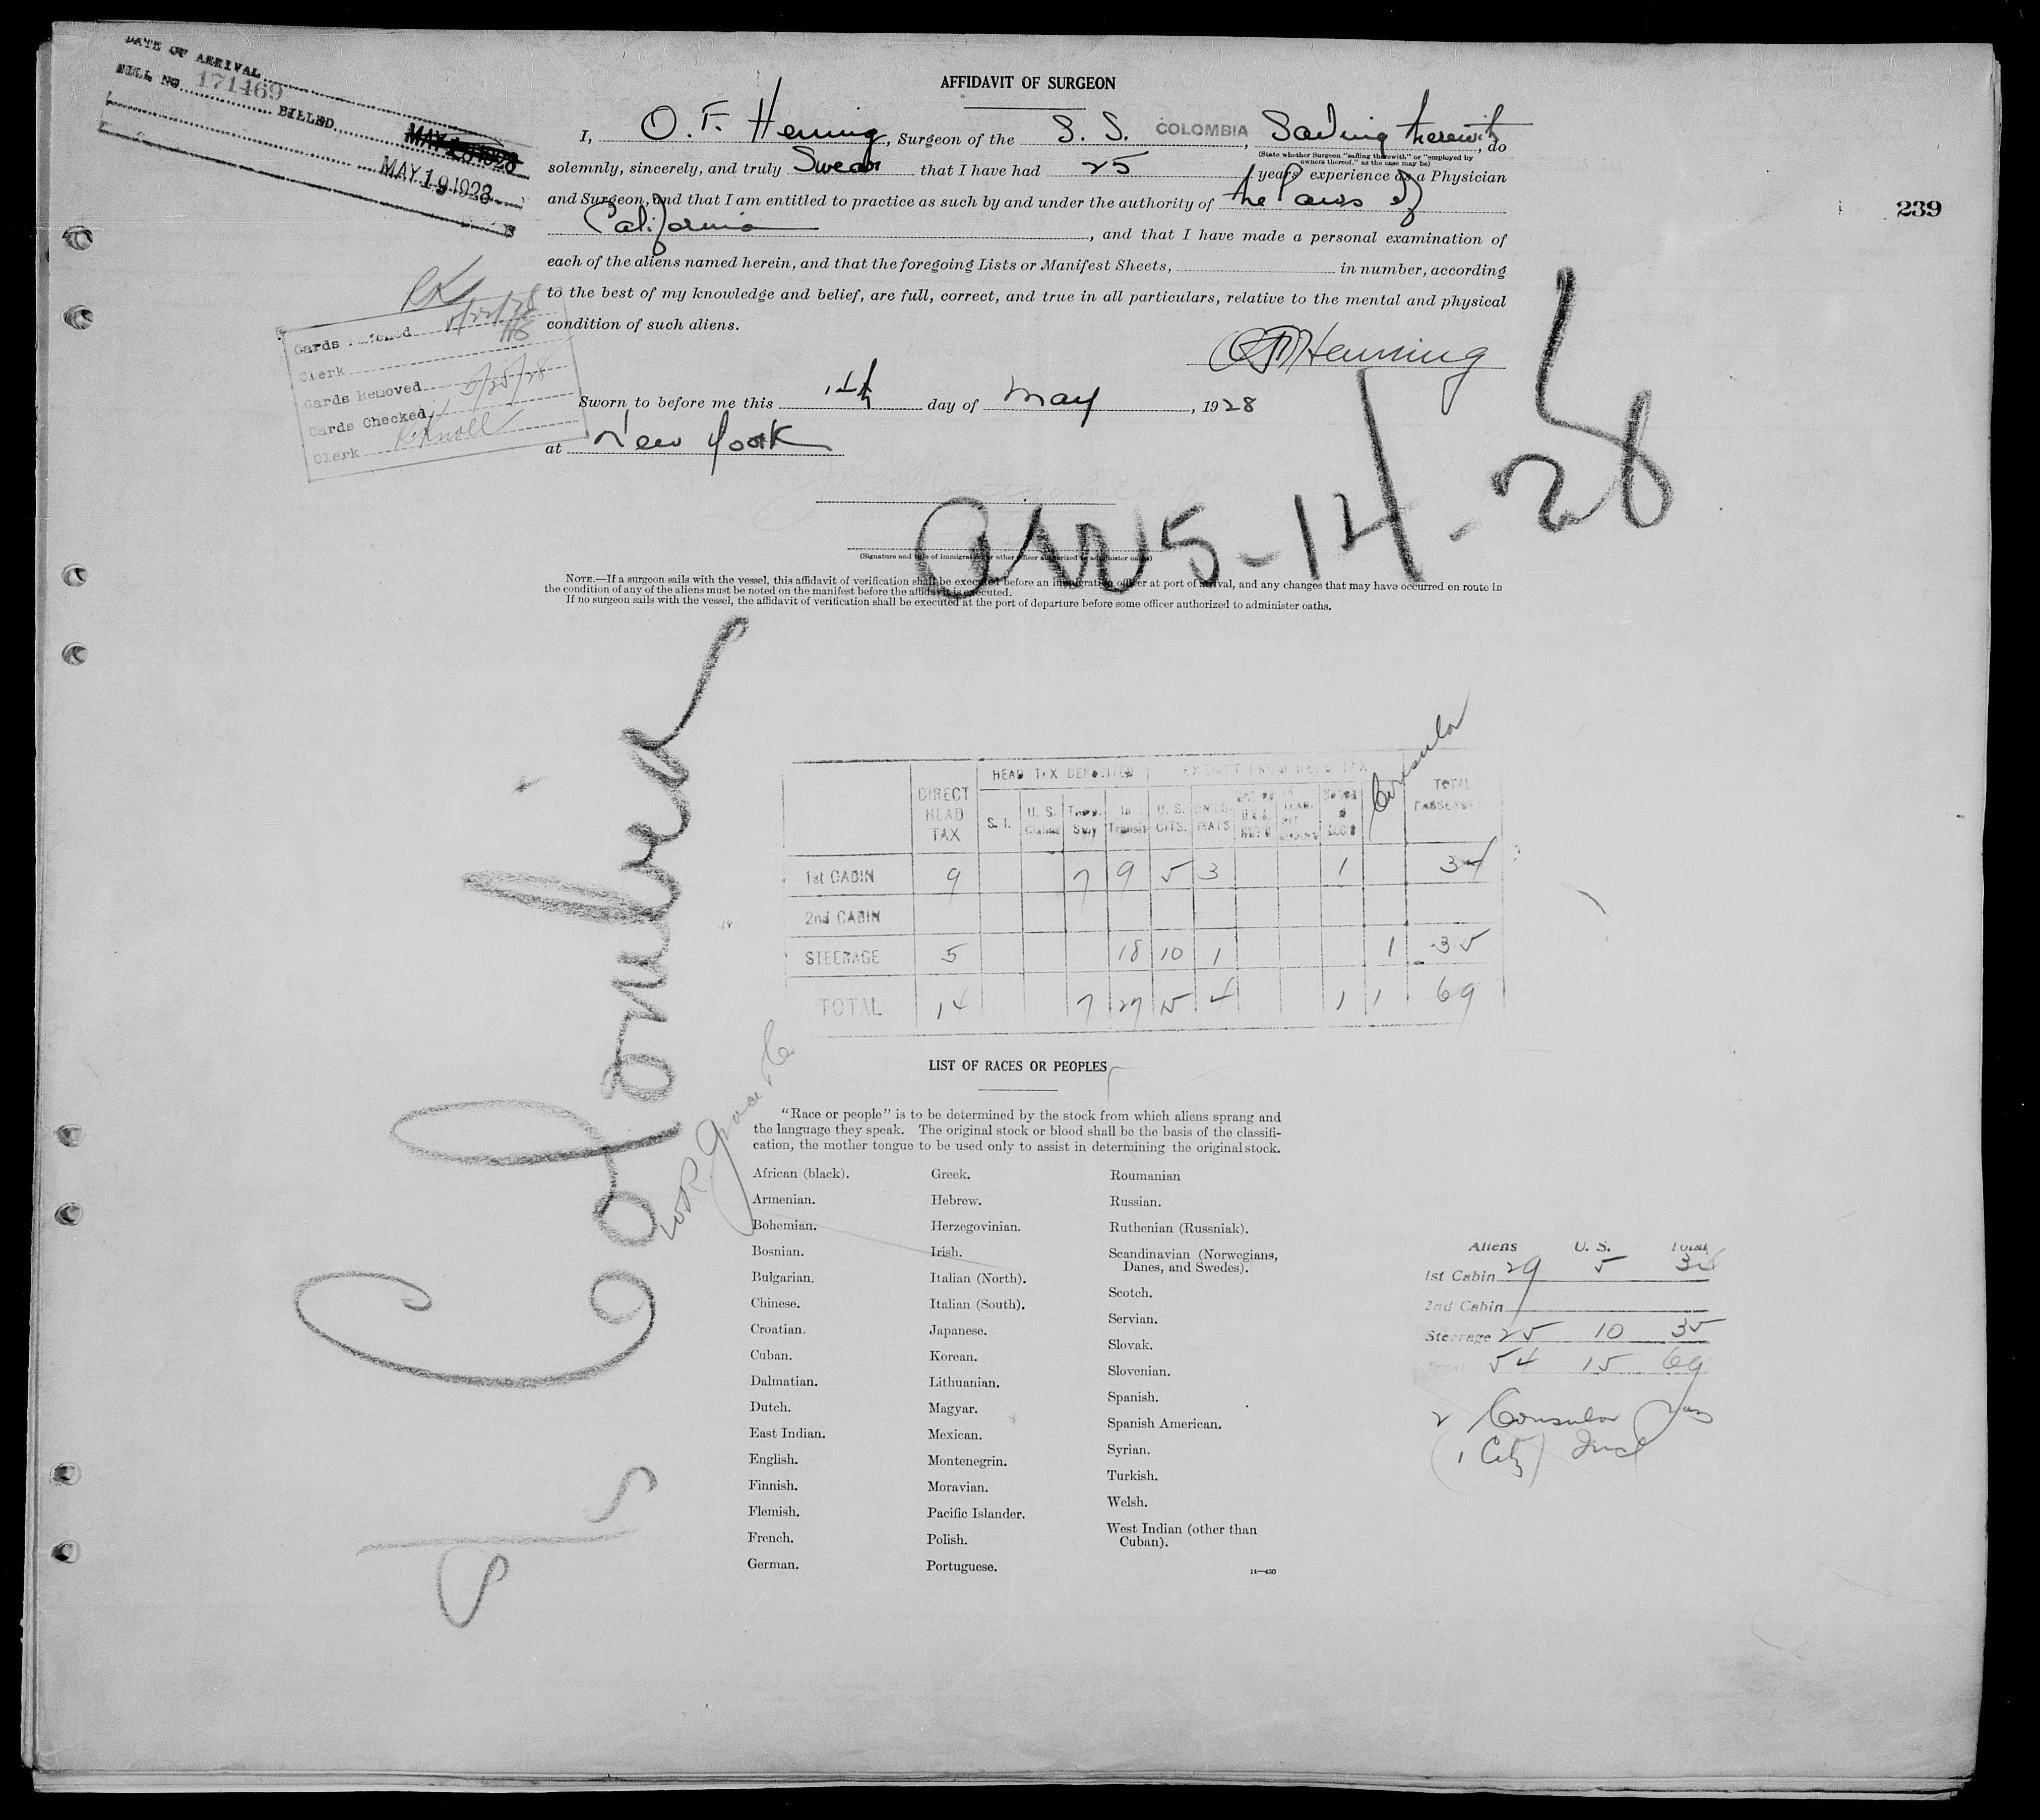 DATE OF ARRIVAL
BILL NO. 171469
BILLED
MAY 19 1928
239
AFFIDAVIT OF SURGEON
I, O. F. Henning, Surgeon of the S. S. COLOMBIA, Sailing therewith, do
(State whether Surgeon "sailing therewith" or "employed by owners thereof," as the case may be)
solemnly, sincerely, and truly Swear that I have had 25 years' experience as a Physician
and Surgeon, and that I am entitled to practice as such by and under the authority of the laws of
California, and that I have made a personal examination of
each of the aliens named herein, and that the foregoing Lists or Manifest Sheets, in number, according
to the best of my knowledge and belief, are full, correct, and true in all particulars, relative to the mental and physical
condition of such aliens.
Henning
Cards
Clerk
Cards Removed 5/25/28
Cards Checked
Clerk
Sworn to before me this day of May, 1928
at New York
5-14-28
(Signature and title of immigration or other officer authorized to administer oaths)
NOTE.—If a surgeon sails with the vessel, this affidavit of verification shall be executed before an immigration officer at port of arrival, and any changes that may have occurred en route in
the condition of any of the aliens must be noted on the manifest before the affidavit is executed.
If no surgeon sails with the vessel, the affidavit of verification shall be executed at the port of departure before some officer authorized to administer oaths.
Colombia
Consular
HEAD TAX DEPOSITED EXEMPT FROM HEAD TAX
DIRECT HEAD TAX S. I. U. S. Claims Temp. Stay In Transit U. S. CITS. TOTAL PASSENGERS
1st CABIN 9 7 9 5 3 1 34
2nd CABIN
STEERAGE 5 18 10 1 1 35
TOTAL 14 7 27 15 4 1 1 69
LIST OF RACES OR PEOPLES
"Race or people" is to be determined by the stock from which aliens sprang and
the language they speak. The original stock or blood shall be the basis of the classifi-
cation, the mother tongue to be used only to assist in determining the original stock.
African (black).
Armenian.
Bohemian.
Bosnian.
Bulgarian.
Chinese.
Croatian.
Cuban.
Dalmatian.
Dutch.
East Indian.
English.
Finnish.
Flemish.
French.
German.
Greek.
Hebrew.
Herzegovinian.
Irish.
Italian (North).
Italian (South).
Japanese.
Korean.
Lithuanian.
Magyar.
Mexican.
Montenegrin.
Moravian.
Pacific Islander.
Polish.
Portuguese.
Roumanian
Russian.
Ruthenian (Russniak).
Scandinavian (Norwegians,
Danes, and Swedes).
Scotch.
Servian.
Slovak.
Slovenian.
Spanish.
Spanish American.
Syrian.
Turkish.
Welsh.
West Indian (other than
Cuban).
14—430
Aliens U. S. Total
1st Cabin 29 5 34
2nd Cabin
Steerage 25 10 35
Total 54 15 69
2 Consular